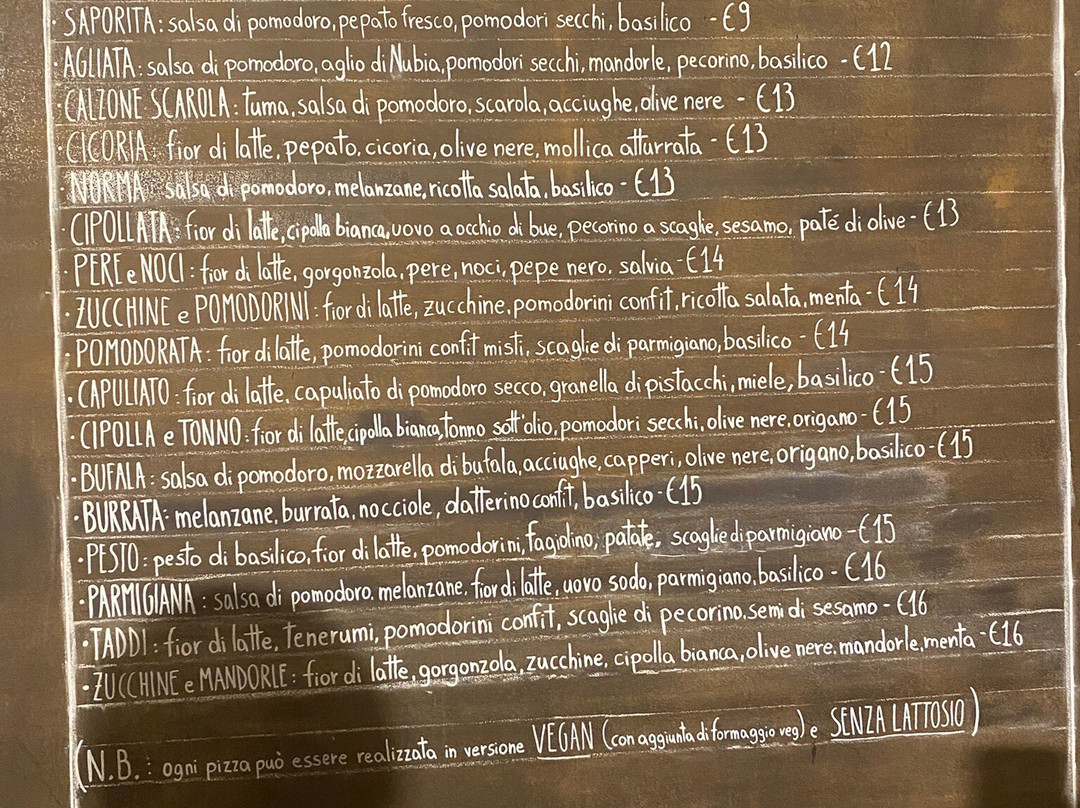 · SAPORITA: salsa di pomodoro, pepato fresco, pomodori secchi, basilico - €9
· AGLIATA: salsa di pomodoro, aglio di Nubia, pomodori secchi, mandorle, pecorino, basilico - €12
· CALZONE SCAROLA: tuma, salsa di pomodoro, scarola, acciughe, olive nere - €13
· CICORIA: fior di latte, pepato, cicoria, olive nere, mollica atturrata - €13
· NORMA: salsa di pomodoro, melanzane, ricotta salata, basilico - €13
· CIPOLLATA: fior di latte, cipolla bianca, uovo a occhio di bue, pecorino a scaglie, sesamo, paté di olive - €13
· PERE e NOCI: fior di latte, gorgonzola, pere, noci, pepe nero, salvia - €14
· ZUCCHINE e POMODORINI: fior di latte, zucchine, pomodorini confit, ricotta salata, menta - €14
· POMODORATA: fior di latte, pomodorini confit misti, scaglie di parmigiano, basilico - €14
· CAPULIATO: fior di latte, capuliato di pomodoro secco, granella di pistacchi, miele, basilico - €15
· CIPOLLA e TONNO: fior di latte, cipolla bianca, tonno sott'olio, pomodori secchi, olive nere, origano - €15
· BUFALA: salsa di pomodoro, mozzarella di bufala, acciughe, capperi, olive nere, origano, basilico - €15
· BURRATA: melanzane, burrata, nocciole, datterino confit, basilico - €15
· PESTO: pesto di basilico, fior di latte, pomodorini, fagiolino, patate, scaglie di parmigiano - €15
· PARMIGIANA: salsa di pomodoro, melanzane, fior di latte, uovo sodo, parmigiano, basilico - €16
· TADDI: fior di latte, tenerumi, pomodorini confit, scaglie di pecorino, semi di sesamo - €16
· ZUCCHINE e MANDORLE: fior di latte, gorgonzola, zucchine, cipolla bianca, olive nere, mandorle, menta - €16
(N.B.: ogni pizza può essere realizzata in versione VEGAN (con aggiunta di formaggio veg) e SENZA LATTOSIO)